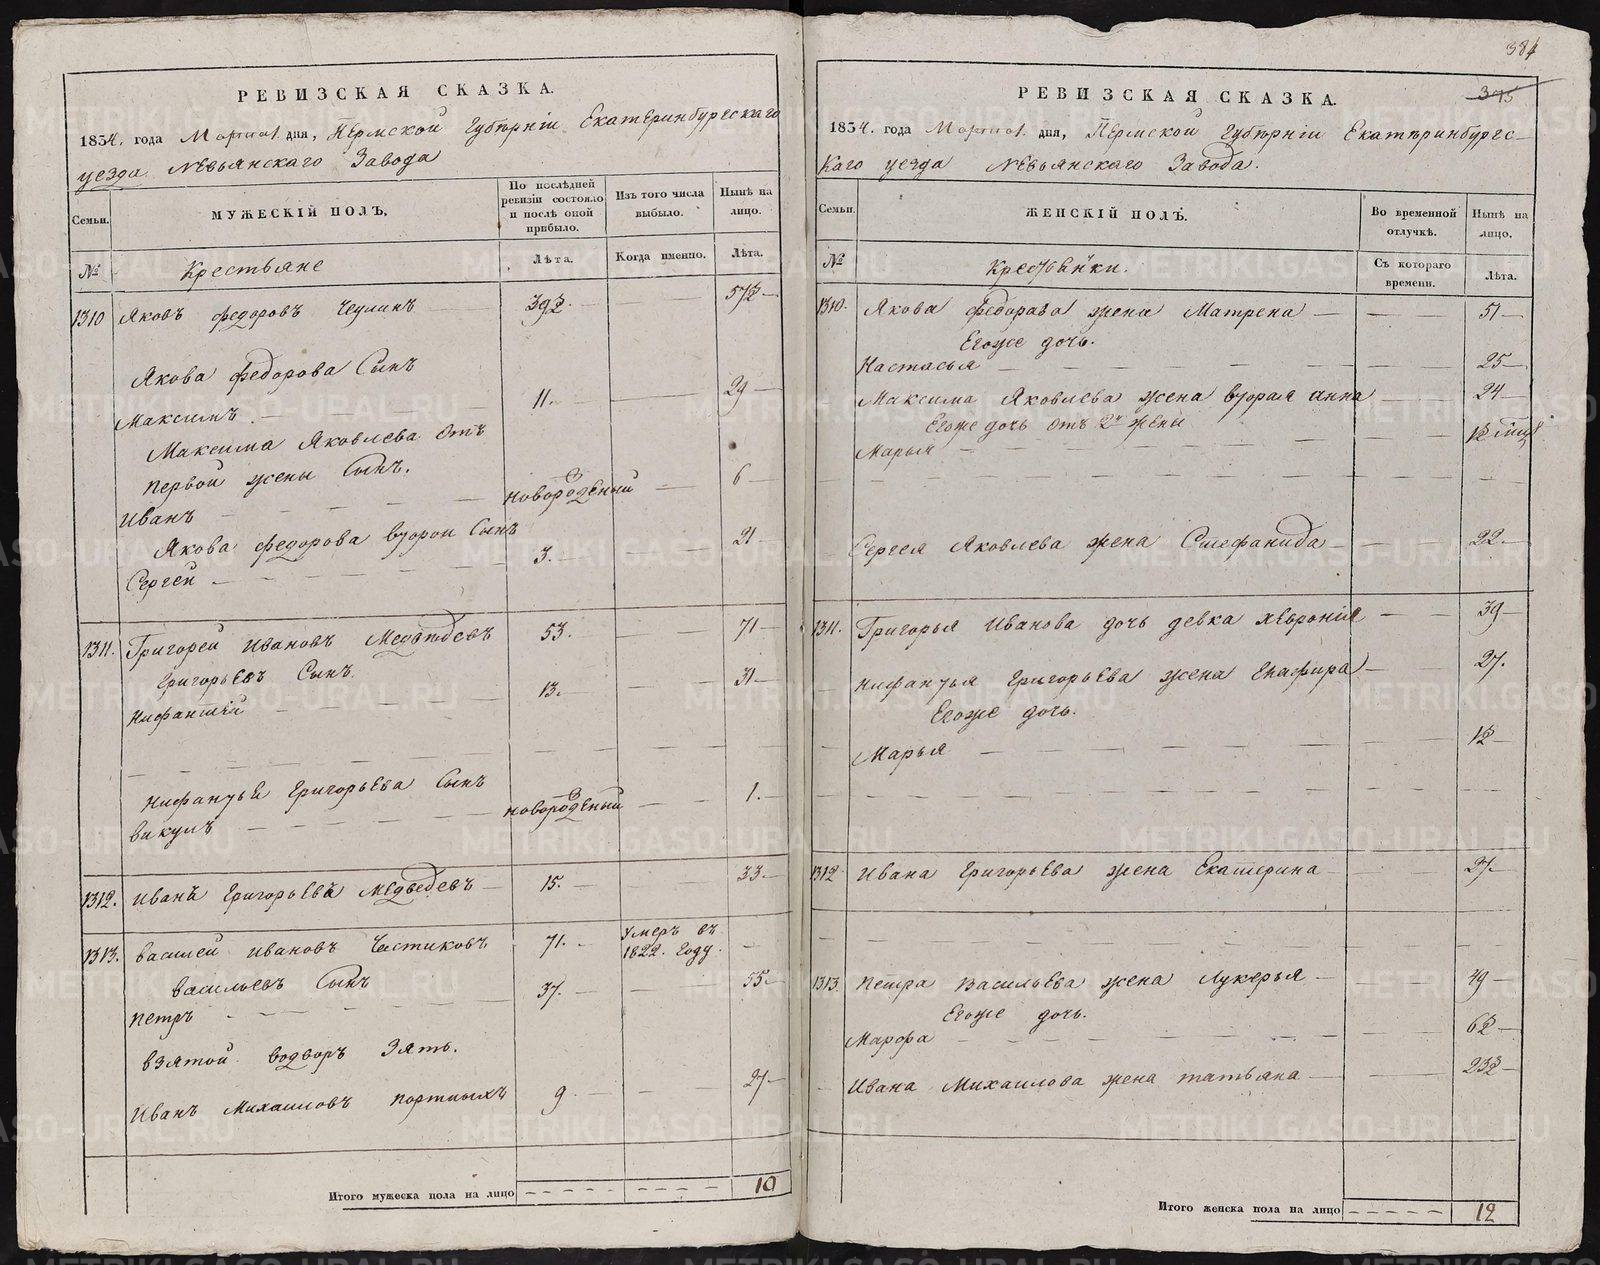 РЕВИЗСКАЯ СКАЗКА.
1834. года Марта 1. дня, Пермской Губѣрніи Екатеринбургскаго
уезда Невьянскаго Завода
Семьи. МУЖЕСКІЙ ПОЛЪ. По послѣдней ревизіи состояло и послѣ оной прибыло. Изъ того числа выбыло. Нынѣ на лицо.
№ Крестьяне Лѣта. Когда именно. Лѣта.
1310 Яковъ Федоровъ Чеулинъ
Якова Федорова Сынъ
Максимъ — 11. — 29
Максима Яковлева Отъ
Первой жены Сынъ.
Иванъ — новорожденый — 6
Якова Федорова второй Сынъ
Сергей — 3. — 21
1311. Григорей Ивановъ Медведевъ 53. — 71
Григорьевъ Сынъ
Нифантий — 13. — 31
Нифантья Григорьева Сынъ
Викулъ — новорожденый — 1.
1312. Иванъ Григорьевъ Медведевъ — 15. — 33
1313. Василей Ивановъ Частиковъ 71. — умеръ въ 1822. году —
Васильевъ Сынъ
Петръ — 37. — 55
Взятой Водворъ Зять.
Иванъ Михаиловъ Портныхъ 9. — 27
Итого мужеска пола на лицо — 10
384
375
РЕВИЗСКАЯ СКАЗКА.
1834. года Марта 1. дня, Пермской Губѣрніи Екатѣринбургс-
каго уезда Невьянскаго Завода.
Семьи. ЖЕНСКІЙ ПОЛЪ. Во временной отлучкѣ. Нынѣ на лицо.
№ Крестьянки. Съ котораго времени. Лѣта.
1310. Якова Федорава жена Матрена — 51
Егоже дочь.
Настасья — 25
Максима Яковлева жена вторая анна 24
Егоже дочь отъ 2й жены
Марья
Сергея Яковлева жена Стефанида — 22
1311. Григорья Иванова дочь девка хеврония — 39
Нифантья Григорьева жена Епафира — 27.
Егоже дочь.
Марья
1312 Ивана Григорьева жена Екатерина — 27
1313 Петра Васильева жена Лукерья — 49
Егоже дочь.
Марфа
Ивана Михаилова жена татьяна
Итого женска пола на лицо — 12
METRIKI.GASO-URAL.RU